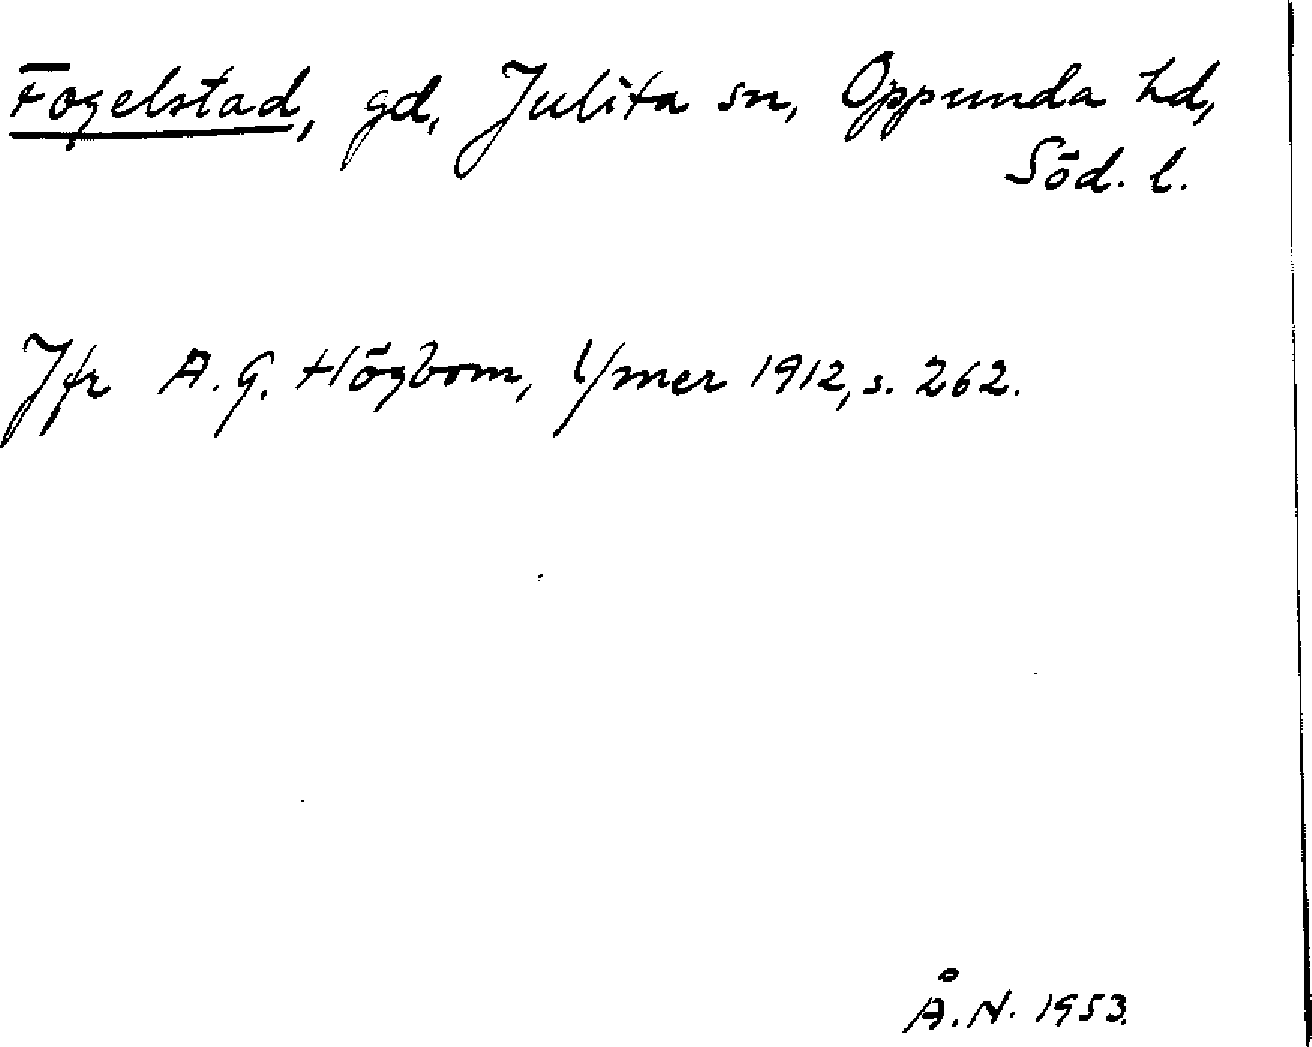 Fogelstad, gd, Julita sn, Oppunda hd,
Söd. l.
Jfr A. G. Högbom, Ymer 1912, s. 262.
Å. N. 1953.